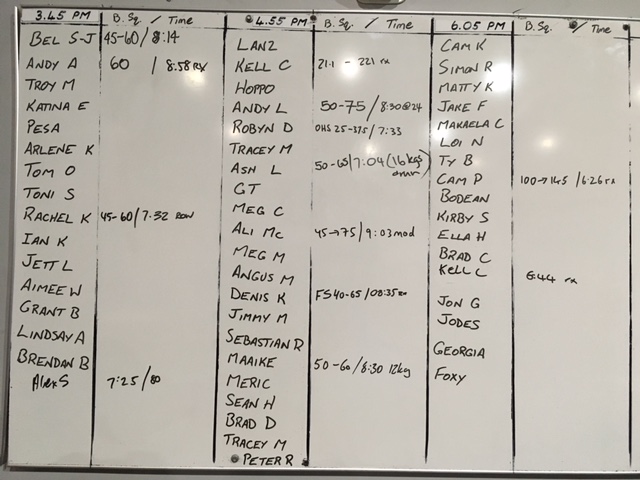 3.45 PM B. Sq. / Time
BEL S-J 45-60/8:14
ANDY A 60 / 8:58 RX
TROY M
KATINA E
PESA
ARLENE K
TOM O
TONI S
RACHEL K 45-60/7:32 ROW
IAN K
JETT L
AIMEE W
GRANT B
LINDSAY A
BRENDAN B
ALEX S 7:25/80
4.55 PM B. Sq. / Time
LANZ
KELL C 21.1 - 221 rx
HOPPO
ANDY L 50-75 / 8:30@24
ROBYN D OHS 25-37.5 / 7:33
TRACEY M
ASH L 50-65/7:04 (16kgs
GT
MEG C
ALI MC 45→75 / 9:03 mod
MEG M
ANGUS M
DENIS K FS 40-65 / 08:35
JIMMY M
SEBASTIAN R
MAAIKE 50-60/8:30 12kg
MERIC
SEAN H
BRAD D
TRACEY M
PETER R
6.05 PM B. Sq. / Time
CAM K
SIMON R
MATTY K
JAKE F
MAKAELA C
LOI N
TY B
CAM P 100→145 / 6:26 rx
BODEAN
KIRBY S
ELLA H
BRAD C
KELL C 6:44 rx
JON G
JODES
GEORGIA
FOXY